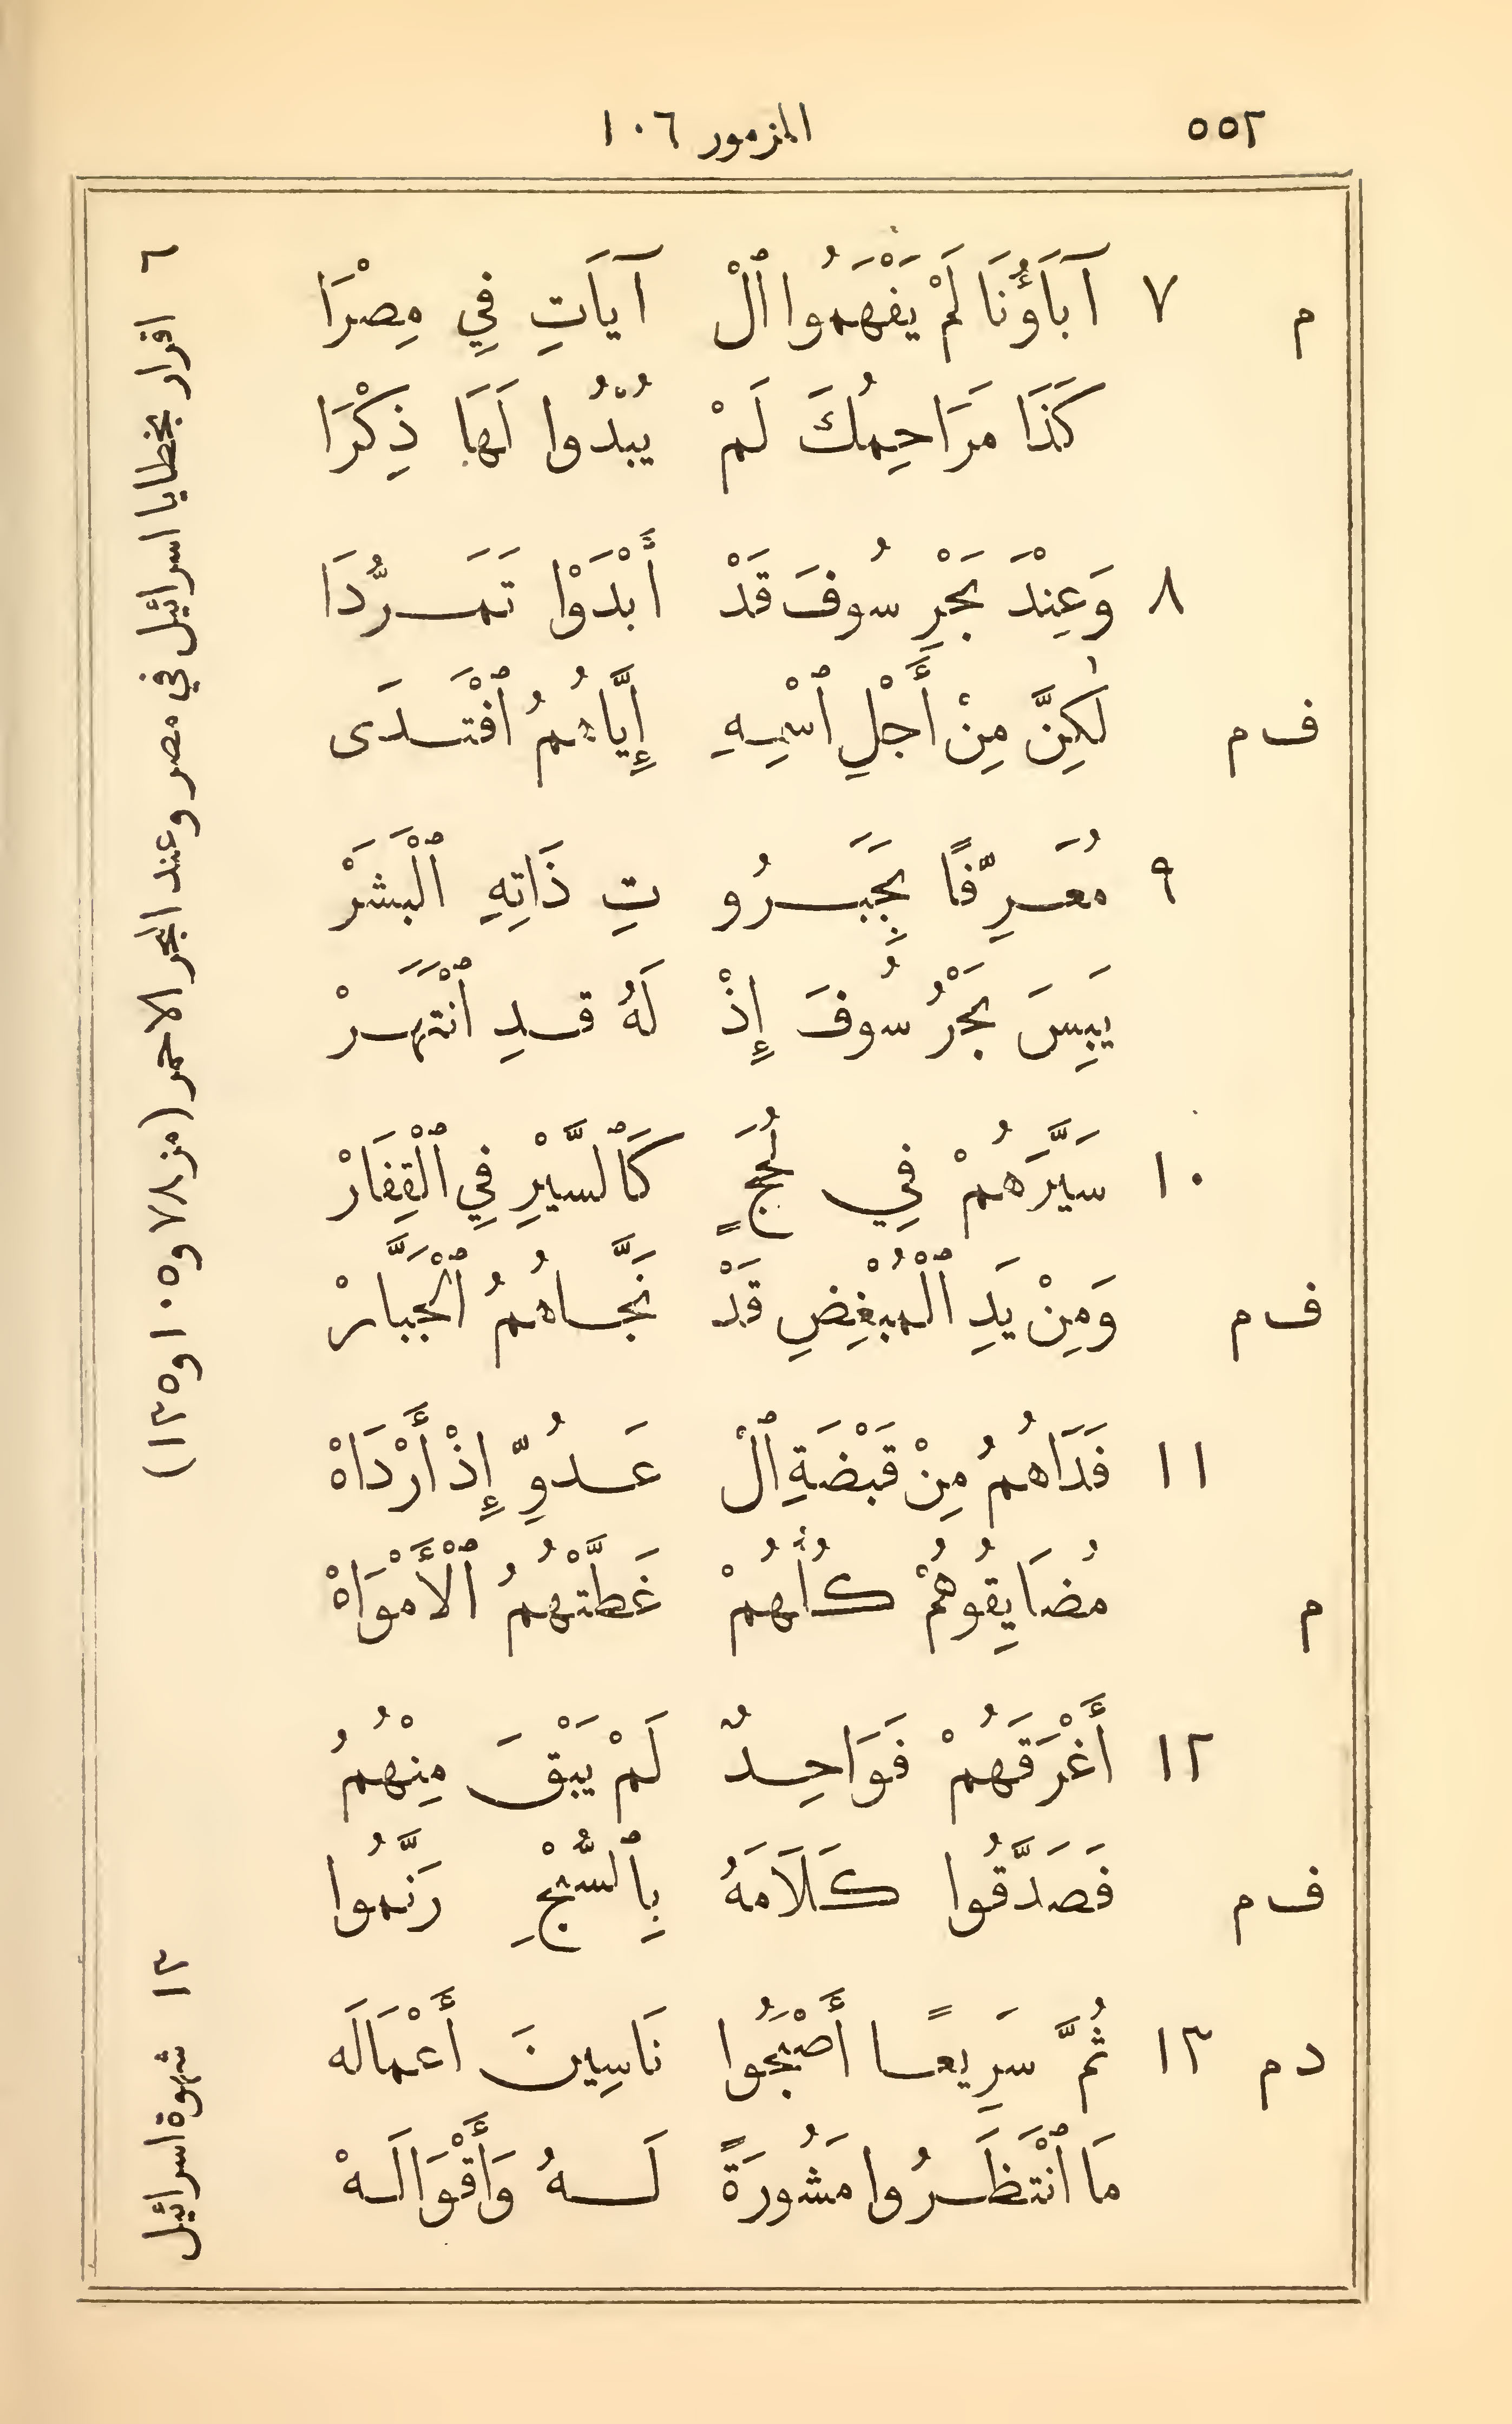 ٥٥٢ المزمور ١٠٦
م ٧ آبَاؤُنَا لَمْ يَفْهَمُوا ٱلْ آيَاتِ فِي مِصْرَا
كَذَا مَرَاحِمُكَ لَمْ يُبْدُوا لَهَا ذِكْرَا
٨ وَعِنْدَ بَحْرِ سُوفَ قَدْ أَبْدَوْا تَمَرُّدَا
ف م لٰكِنَّ مِنْ أَجْلِ ٱسْمِهِ إِيَّاهُمُ ٱفْتَدَى
٩ مُعَرِّفًا بِجَبَرُو تِ ذَاتِهِ ٱلْبَشَرْ
يَبِسَ بَحْرُ سُوفَ إِذْ لَهُ قَدِ ٱنْتَهَرْ
١٠ سَيَّرَهُمْ فِي لُجَجٍ كَٱلسَّيْرِ فِي ٱلْقِفَارْ
ف م وَمِنْ يَدِ ٱلْمُبْغِضِ قَدْ نَجَّاهُمُ ٱلْجَبَّارْ
١١ فَدَاهُمُ مِنْ قَبْضَةِ ٱلْ عَدُوِّ إِذْ أَرْدَاهْ
م مُضَايِقُوهُمْ كُلُّهُمْ غَطَّتْهُمُ ٱلْأَمْوَاهْ
١٢ أَغْرَقَهُمْ فَوَاحِدٌ لَمْ يَبْقَ مِنْهُمُ
ف م فَصَدَّقُوا كَلَامَهُ بِٱلسُّبْحِ رَنَّمُوا
د م ١٣ ثُمَّ سَرِيعًا أَصْبَحُوا نَاسِينَ أَعْمَالَه
مَا ٱنْتَظَرُوا مَشُورَةً لَهُ وَأَقْوَالَهْ
٦ اقرار بخطايا اسرائيل في مصر وعند البحر الاحمر (مز ٧٨ و ١٠٥ و ١٣٥)
١٣ شهوة اسرائيل